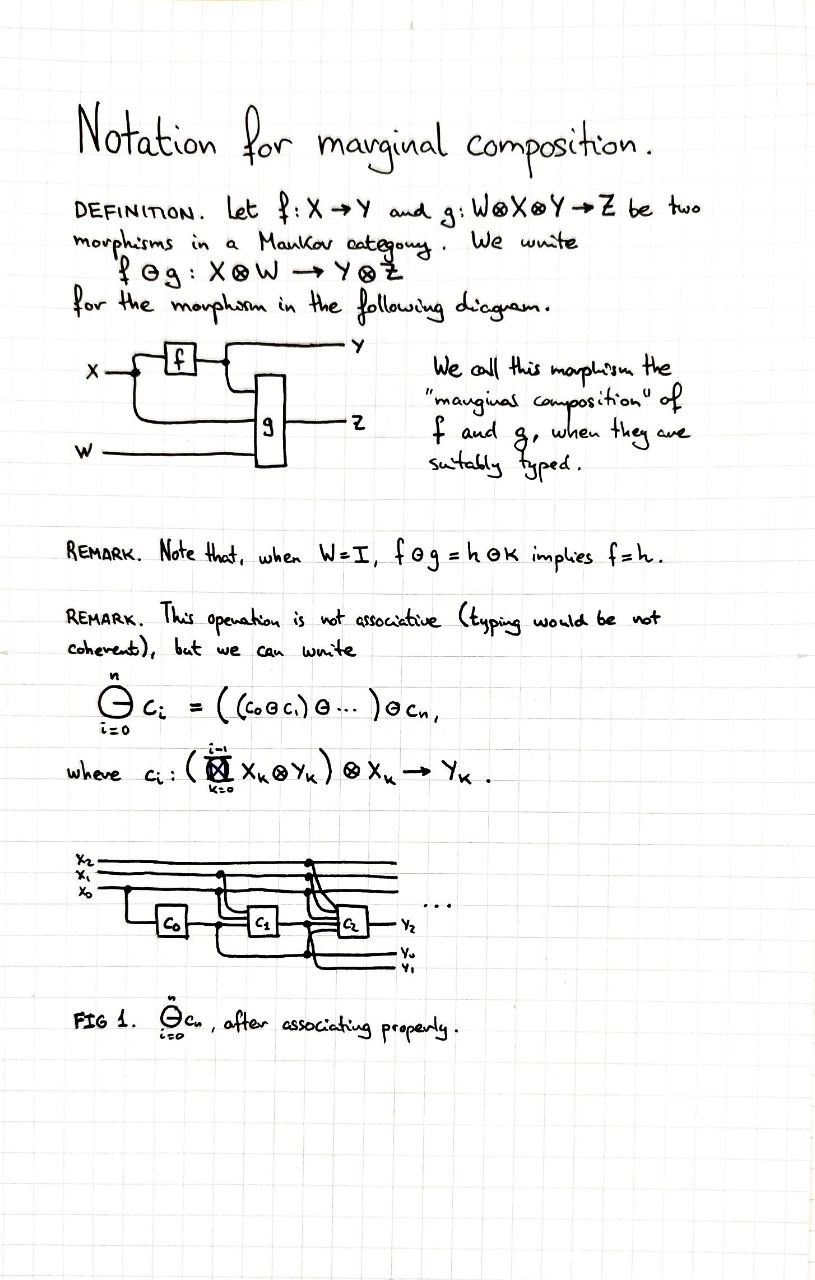 Notation for marginal composition.
DEFINITION. Let f: X → Y and g: W⊗X⊗Y → Z be two
morphisms in a Markov category. We write
f ⊖ g : X⊗W → Y⊗Z
for the morphism in the following diagram.
X f Y
g Z
W
We call this morphism the
"marginal composition" of
f and g, when they are
suitably typed.
REMARK. Note that, when W=I, f⊖g = h⊖k implies f=h.
REMARK. This operation is not associative (typing would be not
coherent), but we can write
n
⊖ cᵢ = ((c₀⊖c₁)⊖...)⊖cₙ,
i=0
i-1
where cᵢ: (⊠ Xₖ⊗Yₖ) ⊗ Xₖ → Yₖ.
k=0
X₂
X₁
X₀
...
C₀ C₁ C₂ Y₂
Y₀
Y₁
n
FIG 1. ⊖cₙ, after associating properly.
i=0